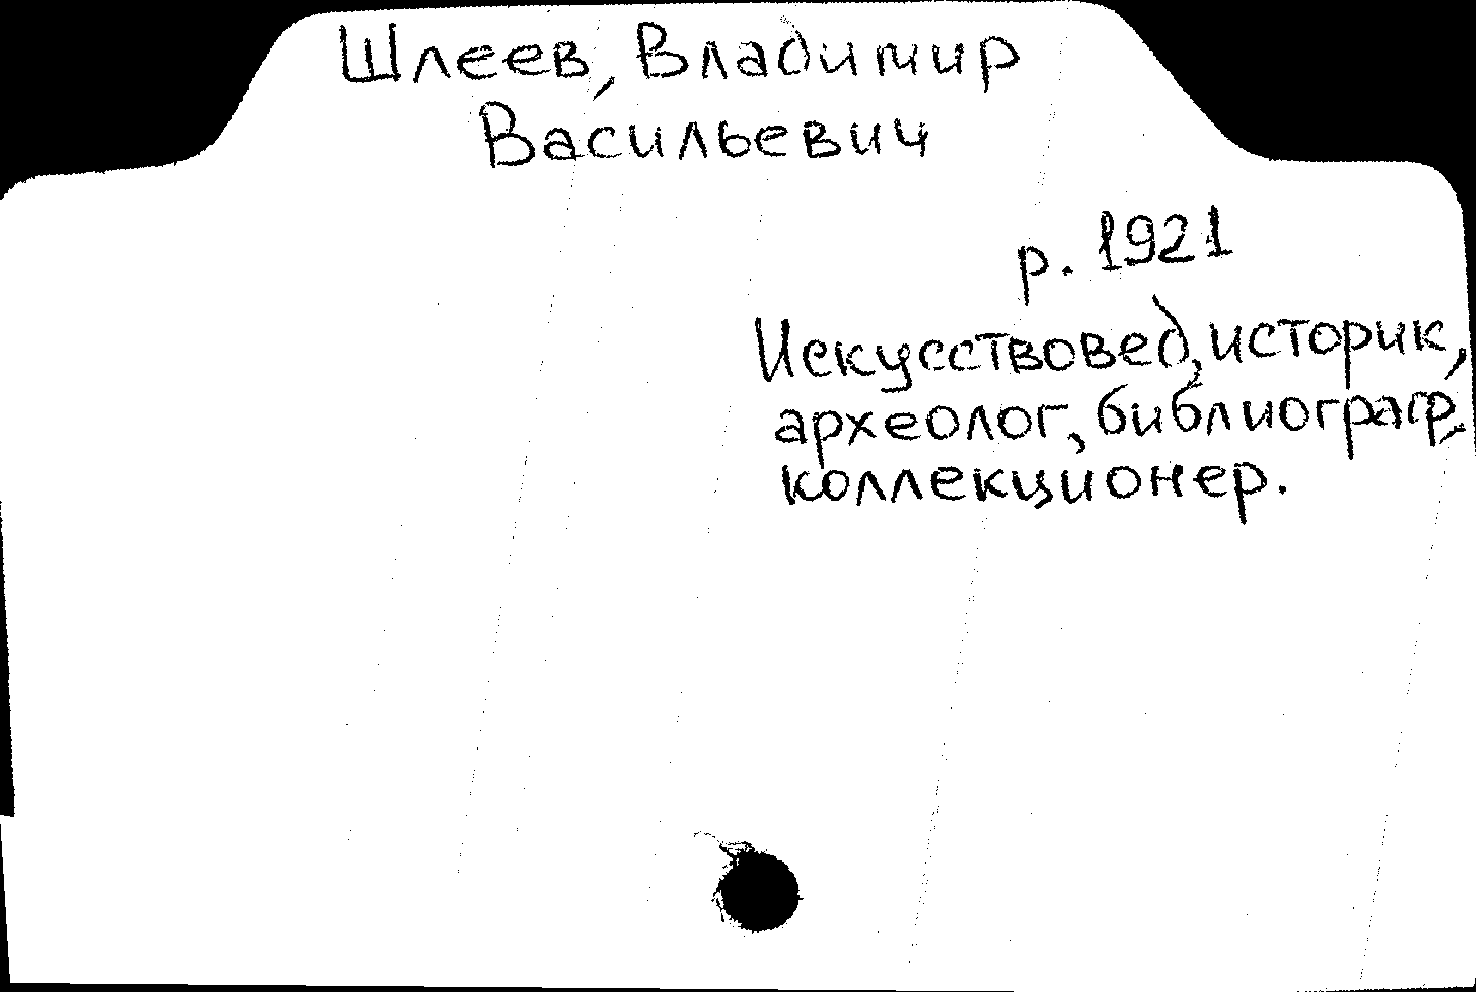 Шлеев, Владимир
Васильевич
р. 1921
Искусствовед, историк,
археолог, библиограф,
коллекционер.